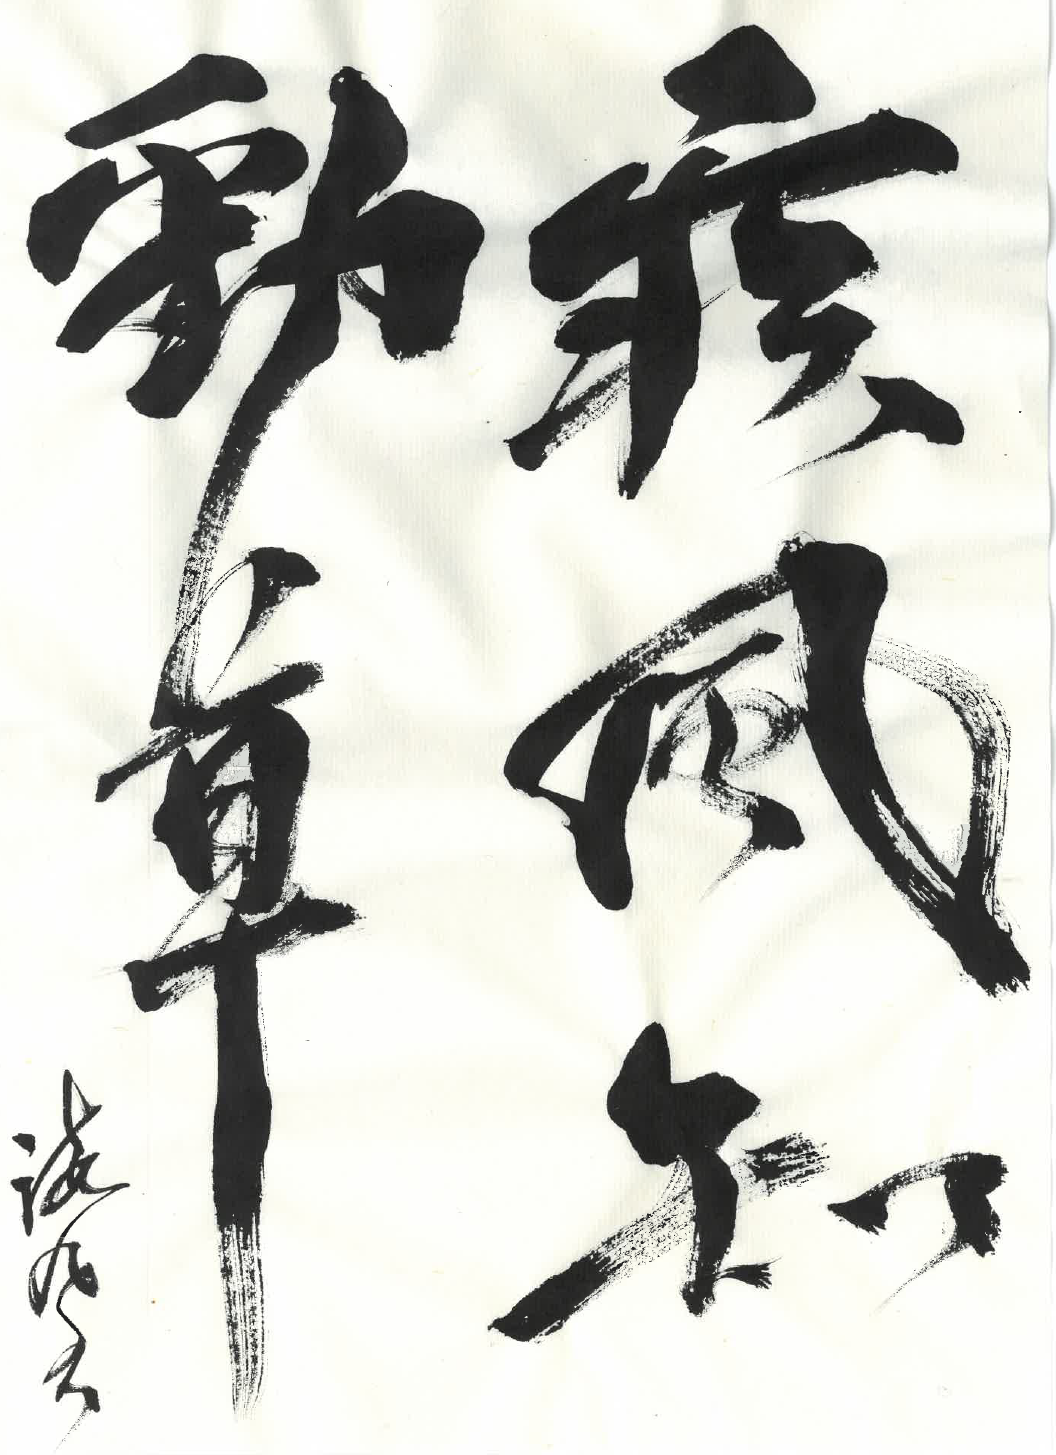 疾風知
勁草